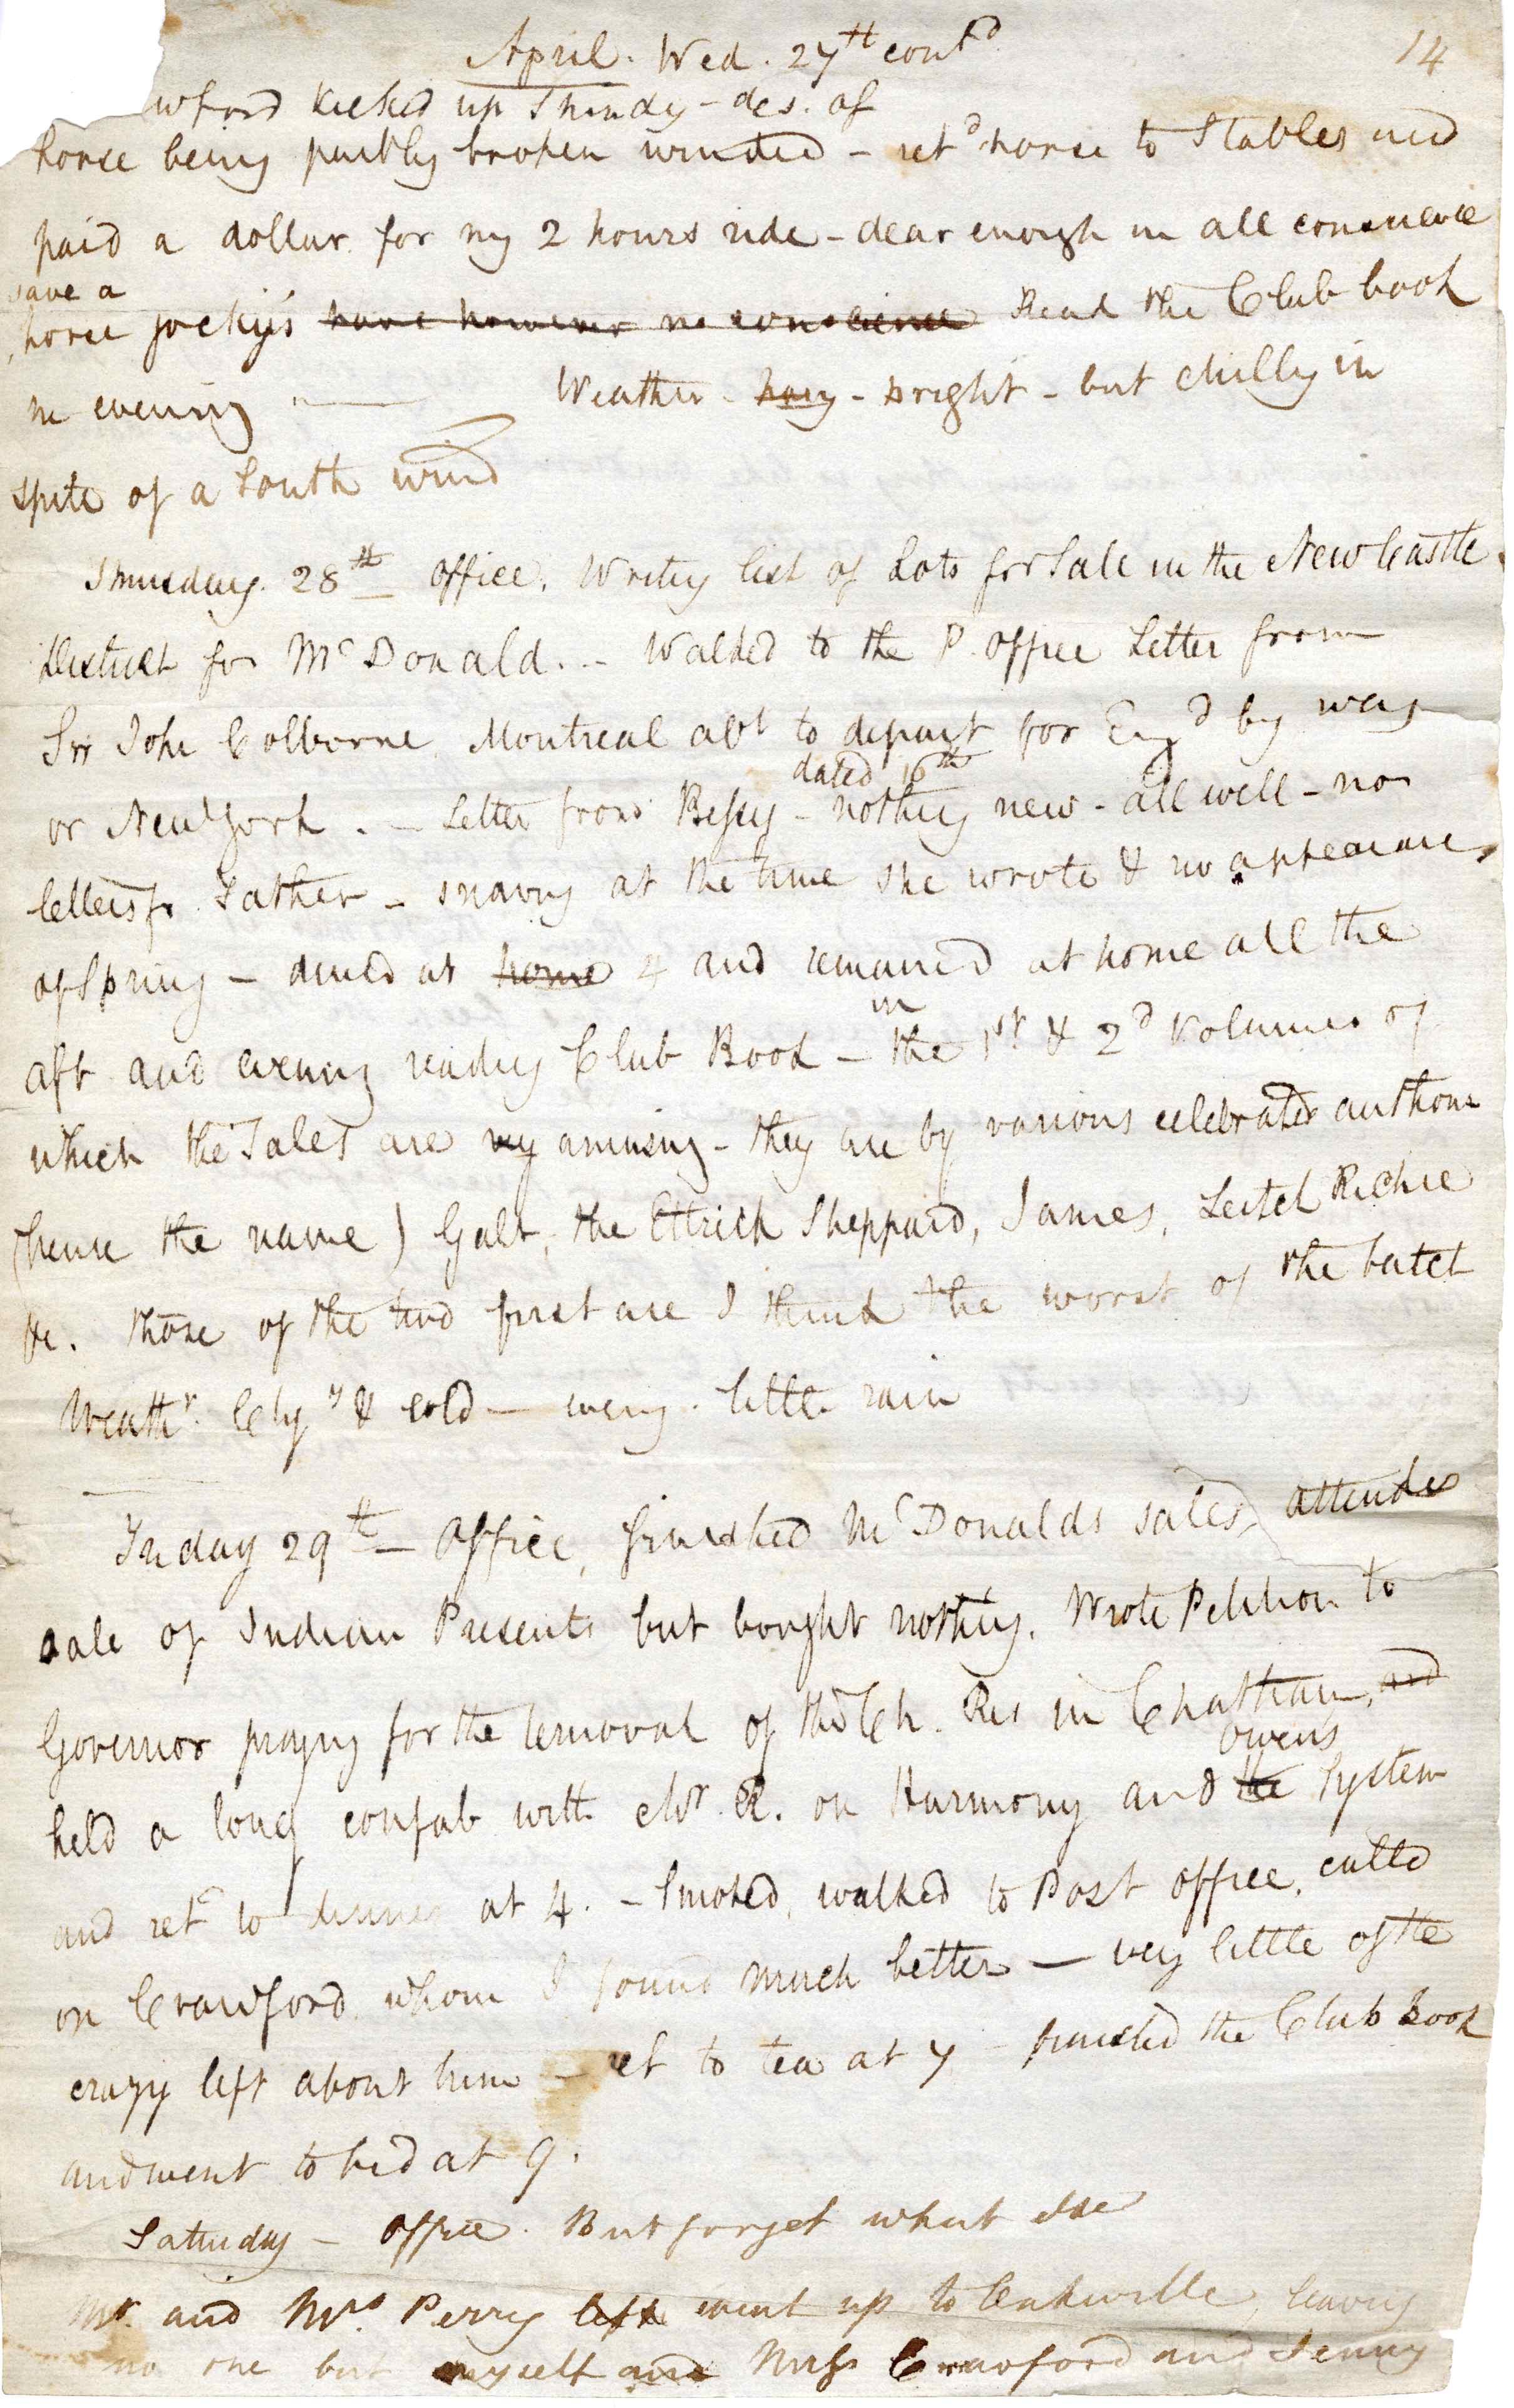 April. Wed. 27th contd
14
wford kicked up Shindy - des. of
horse being partly broken winded - retd horse to Stables and
paid a dollar for my 2 hours ride - dear enough in all conscience
save a
horse jockey's have however no conscience Read the Club book
in evening Weather - hazy - bright - but chilly in
spite of a South wind
Thursday. 28th office. Writing list of Lots for Sale in the New Castle
District for McDonald. - Walked to the P. Office Letter from
Sir John Colborne Montreal abt to depart for Engd by way
dated 16th
or New York. - Letter from Bessy - nothing new - all well - no
letters fr Father - snowing at the time she wrote & no appearance
of Spring - dined at home 4 and remained at home all the
in
aft and evening reading Club Book - the 1st & 2d Volumes of
which the Tales are very amusing - they are by various celebrated authors
(hence the name) Galt, the Ettrick Sheppard, James, Leitch Richie
&c. those of the two first are I think the worst of the batch
Weathr. Cldy & cold - eveng. little rain
Friday 29th - Office, finished McDonalds sales, attended
sale of Indian Presents but bought nothing. Wrote Petition to
Governor praying for the removal of the Ch. Res in Chatham, and
owens
held a long confab with Mr. R. on Harmony and the System
and retd to dinner at 4. - Smoked, walked to Post office, called
on Crawford whom I found much better - very little of the
crazy left about him - ret to tea at 7 - finished the Club Book
and went to bed at 9.
Saturday - Office. But forget what else
Mr. and Mrs. Perry left went up to Oakville, leaving
no one but myself and Miss Crawford and Jenny